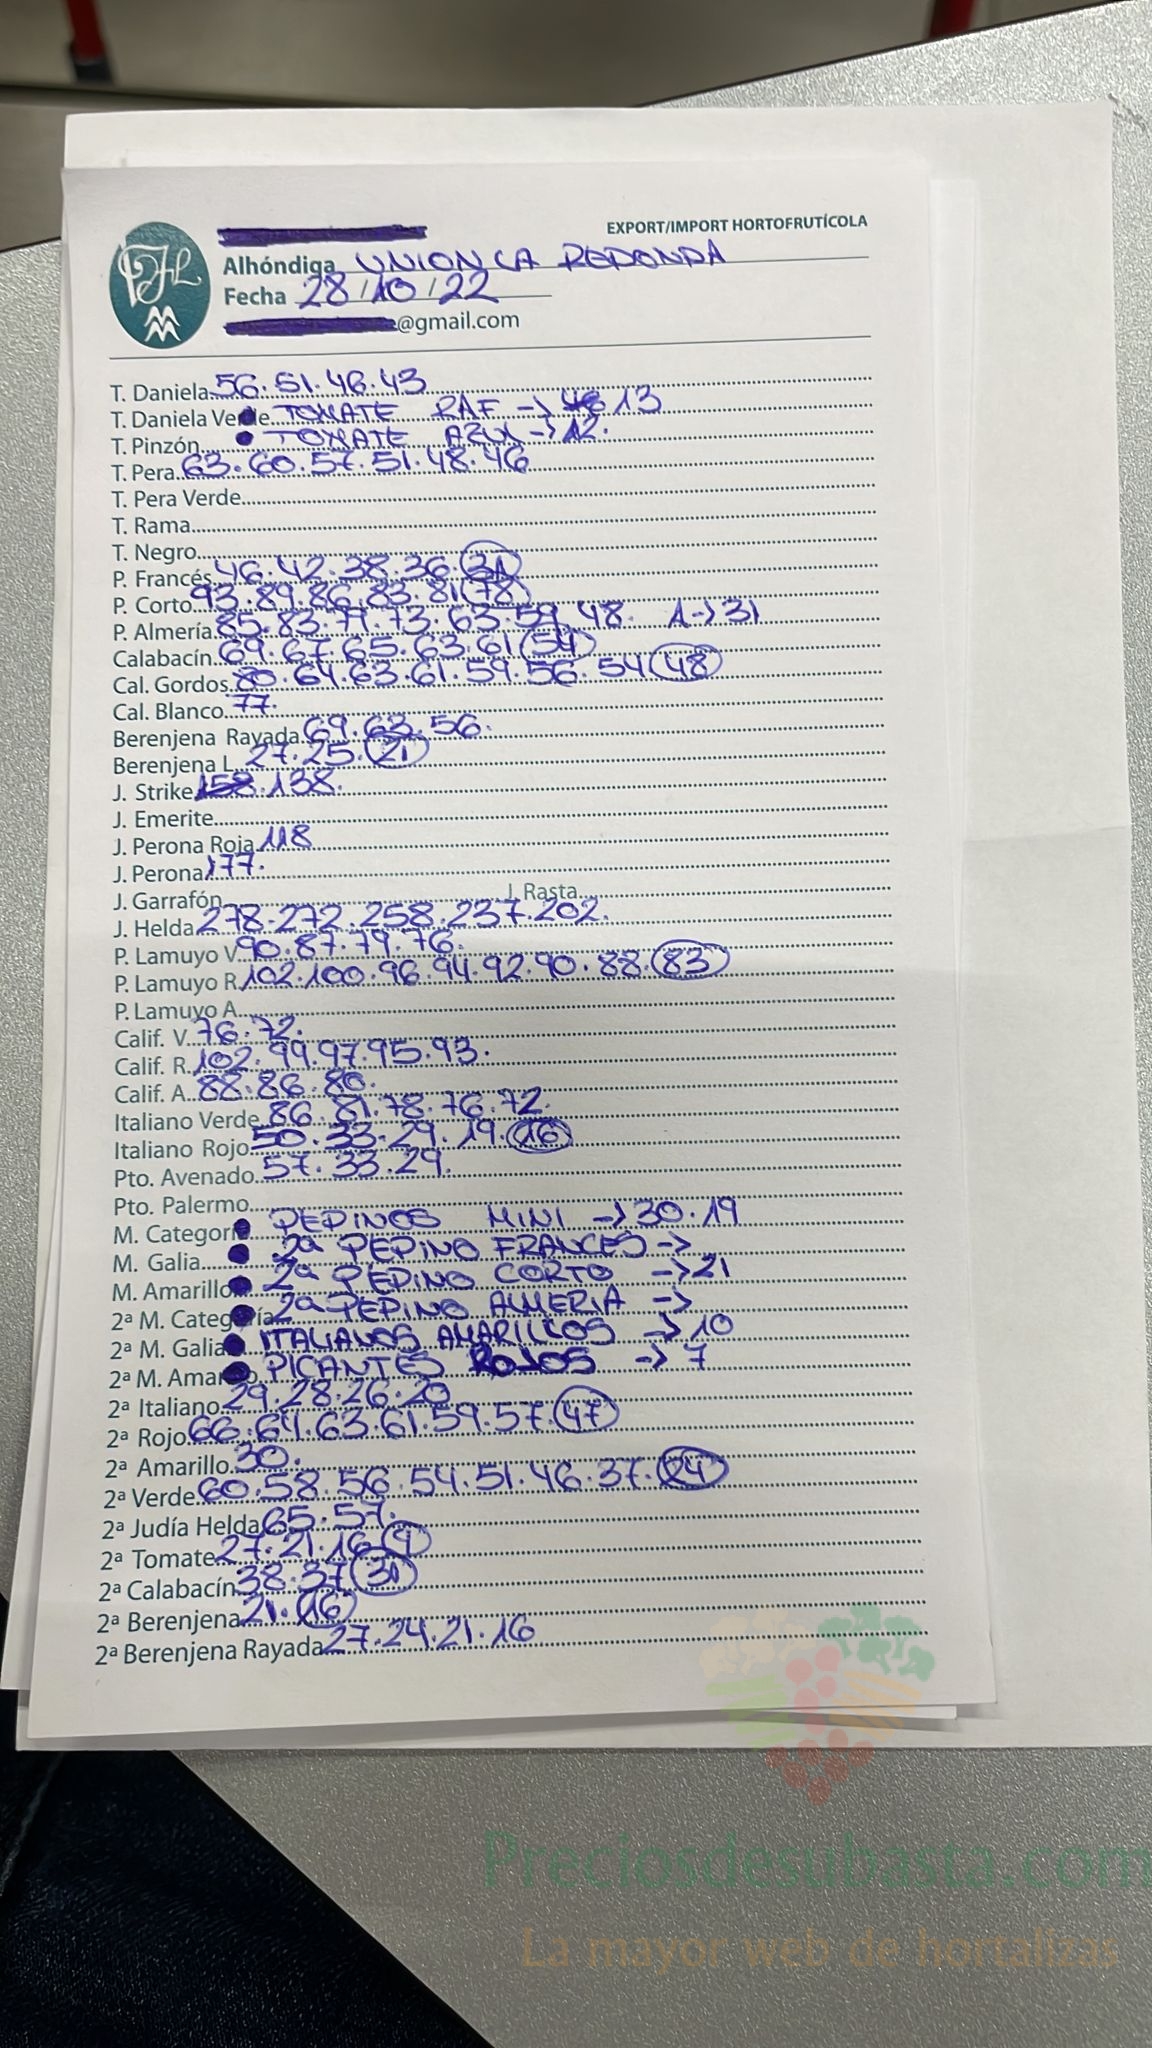 EXPORT/IMPORT HORTOFRUTÍCOLA
Alhóndiga UNION LA REDONDA
Fecha 28/10/22
@gmail.com
T. Daniela 56.51.46.43
T. Daniela Verde TOMATE RAF -> 13
T. Pinzón TOMATE AZUL -> 12.
T. Pera 63.60.57.51.48.46
T. Pera Verde
T. Rama
T. Negro
P. Francés 46.42.38.36.31
P. Corto 93.89.86.83.81 78
P. Almería 85.83.79.73.63.59.48. 1->31
Calabacín 69.67.65.63.61 54
Cal. Gordos 80.64.63.61.59.56.54 48
Cal. Blanco 77.
Berenjena Rayada 69.63.56.
Berenjena L. 27.25.21
J. Strike 158.138.
J. Emerite
J. Perona Roja 118
J. Perona 177.
J. Garrafón J. Rasta
J. Helda 278.272.258.237.202.
P. Lamuyo V. 90.87.79.76.
P. Lamuyo R. 102.100.96.94.92.90.88.83
P. Lamuyo A.
Calif. V. 76.72.
Calif. R. 102.99.97.95.93.
Calif. A. 88.86.80.
Italiano Verde 86.81.78.76.72.
Italiano Rojo 50.33.29.19.16
Pto. Avenado 57.33.29.
Pto. Palermo
M. Categoría PEPINOS MINI -> 30.19
M. Galia 2ª PEPINO FRANCES ->
M. Amarillo 2ª PEPINO CORTO -> 21
2ª M. Categoría 2ª PEPINO ALMERIA ->
2ª M. Galia ITALIANOS AMARILLOS -> 10
2ª M. Amarillo PICANTES ROJOS -> 7
2ª Italiano 29.28.26.20
2ª Rojo 66.64.63.61.59.57.47
2ª Amarillo 30.
2ª Verde 60.58.56.54.51.46.37.24
2ª Judía Helda 65.57.
2ª Tomate 27.21.16.9
2ª Calabacín 38.37 31
2ª Berenjena 21.16
2ª Berenjena Rayada 27.24.21.16
Preciosdesubasta.com
La mayor web de hortalizas